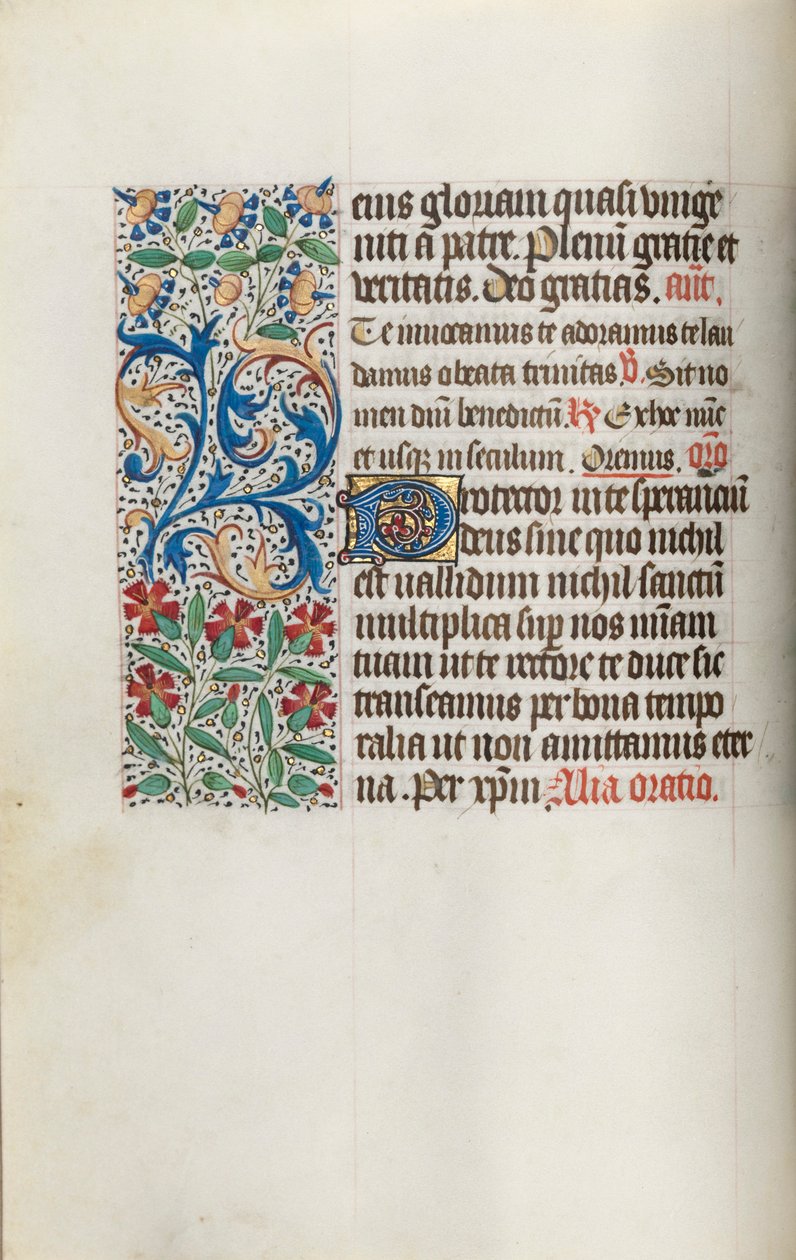 eius gloriam quasi vnige
niti a patre. Plenū gratie et
veritatis. Deo gratias. anͭ.
Te inuocamus te adoramus te lau
damus o beata trinitas. v̄. Sit no
men dn̄i benedictū. R̷ Ex hoc nūc
et usqꝫ in seculum. Oremus. or̄o
Protector in te speranciū
deus sine quo nichil
est uallidum nichil sanctū
multiplica suꝑ nos mīam
tuam ut te rectore te duce sic
transeamus per bona tempo
ralia ut non amittamus eter
na. Per xp̄m Alia oratio.